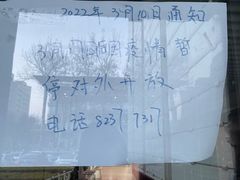 2022年3月10日通知
3月门 因疫情暂
停对外开放
电话 8237 7317